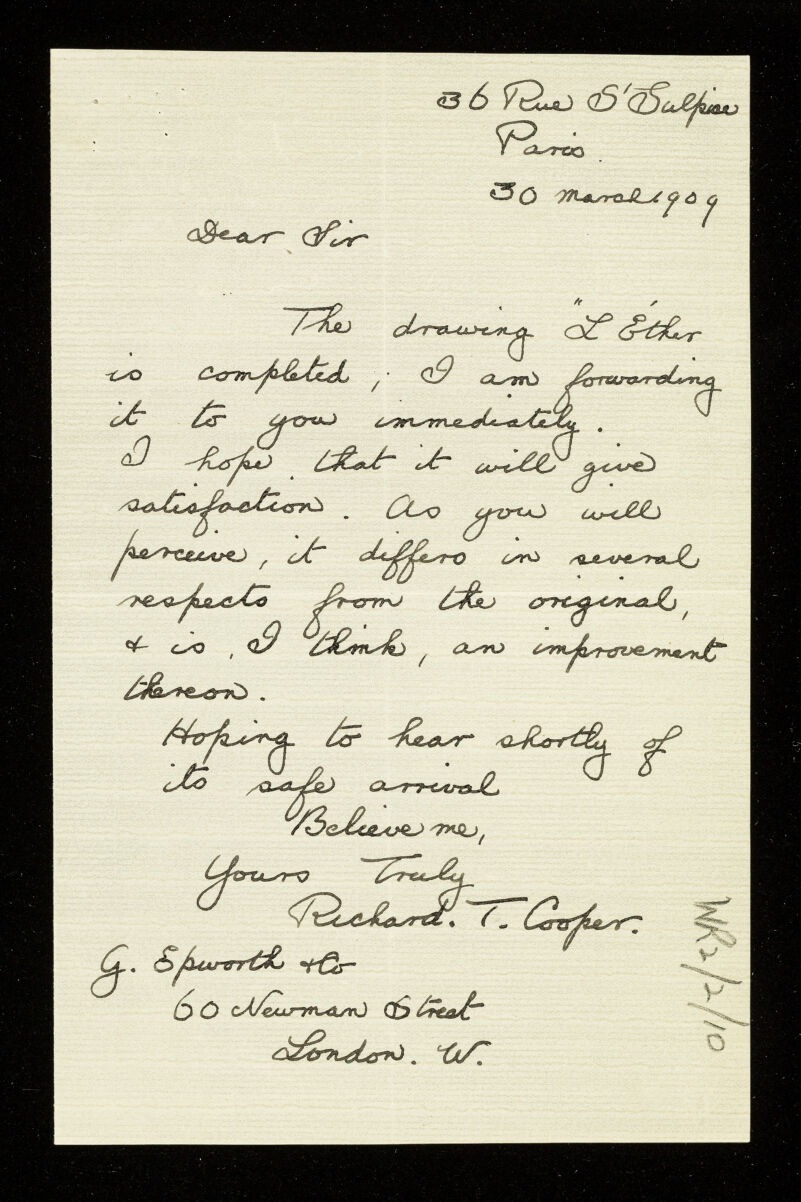 36 Rue St Sulpice
Paris.
30 March 1909
Dear Sir
The drawing "L'Éther
is completed; I am forwarding
it to you immediately.
I hope that it will give
satisfaction. As you will
perceive, it differs in several
respects from the original,
& is, I think, an improvement
thereon.
Hoping to hear shortly of
its safe arrival
Believe me,
Yours Truly
Richard. T. Cooper.
G. Epworth & Co
60 Newman Street
London. W.
WR2/2/10